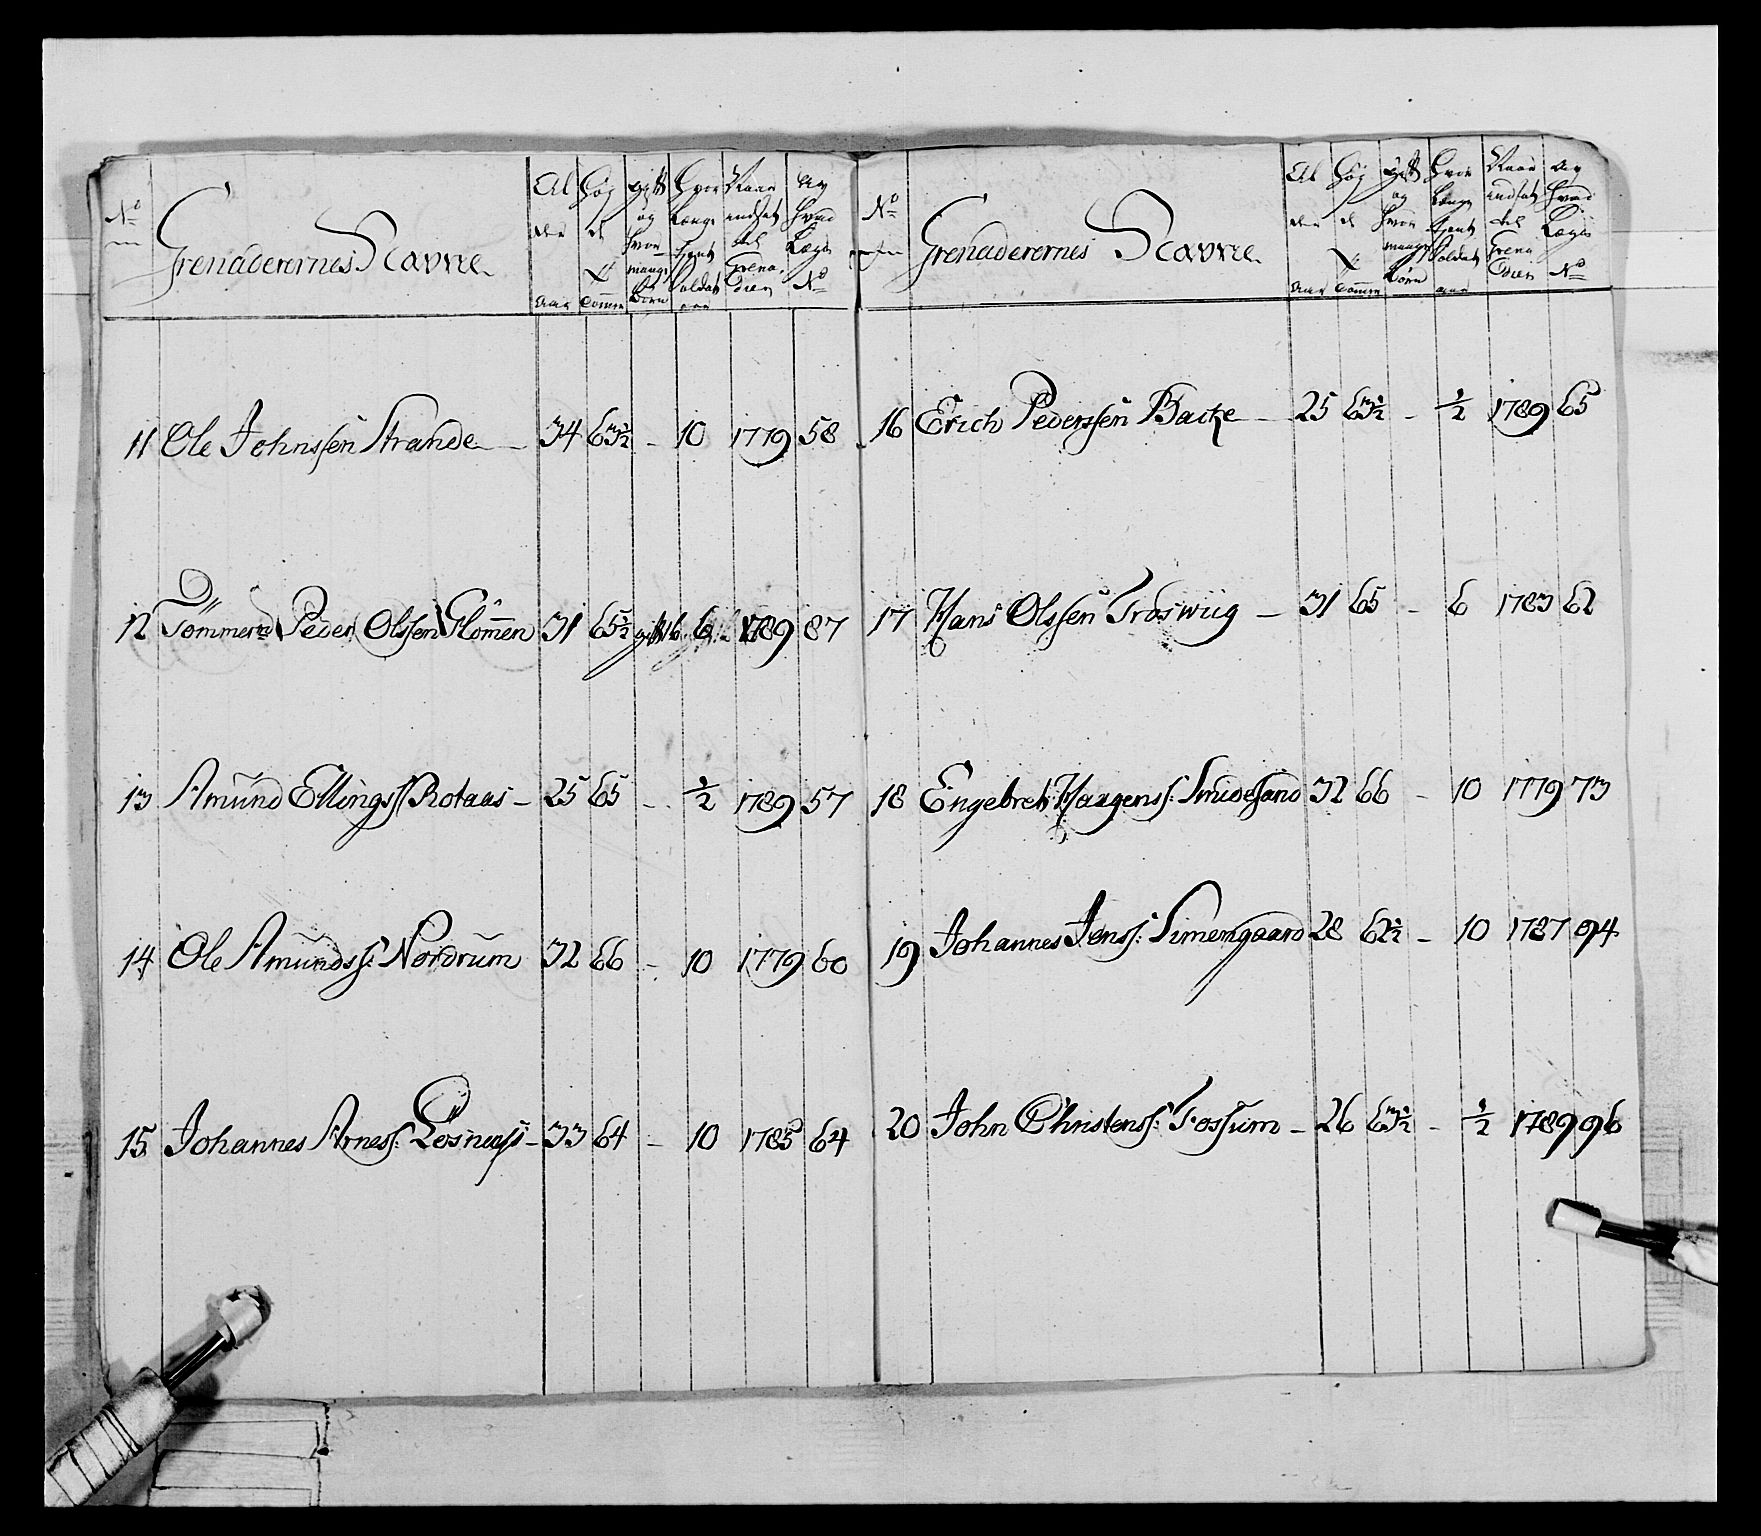 No
Grenaderernes Navne
Al
der
Aar
Høj
de
Tommer
gift
og
hvor
mange
Børn
Hvor
Længe
tient
Soldat
aar
Naar
indsat
til
Grena
Af
Hvad
Lægd
No
11 Ole Johnssen Strande 34 63½ - 10 1779 58
12 Tømmermd Peder Olssen Glommen 31 65½ gift 6 1789 87
13 Amund Ellingss Rotaas - 25 65 - ½ 1789 57
14 Ole Amundss: Nordrum 32 66 - 10 1779 60
15 Johannes Arness: Løsnæss - 33 64 - 10 1785 64
No
Grenaderernes Navne
Al
der
Aar
Høj
de
Tommer
gift
og
hvor
mange
Børn
Hvor
Længe
tient
Soldat
aar
Naar
indsat
til
Grena
Af
Hvad
Lægd
No
16 Erich Pederssen Backe - 25 63½ - ½ 1789 65
17 Hans Olssen Troswiig - 31 65 - 6 1783 62
18 Engebret Haagenss: Smidesand 32 66 - 10 1779 73
19 Johannes Jenss: Simengaard 28 62½ - 10 1787 94
20 John Christenss: Fossum - 26 63½ - ½ 1789 96